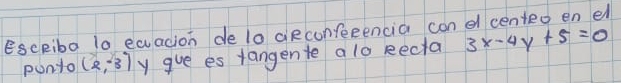 Escribo lo ecuacion de lo circunferencia con el centro en el
punto (2,-3) y que es tangente a lo recta 3x-4y+5=0